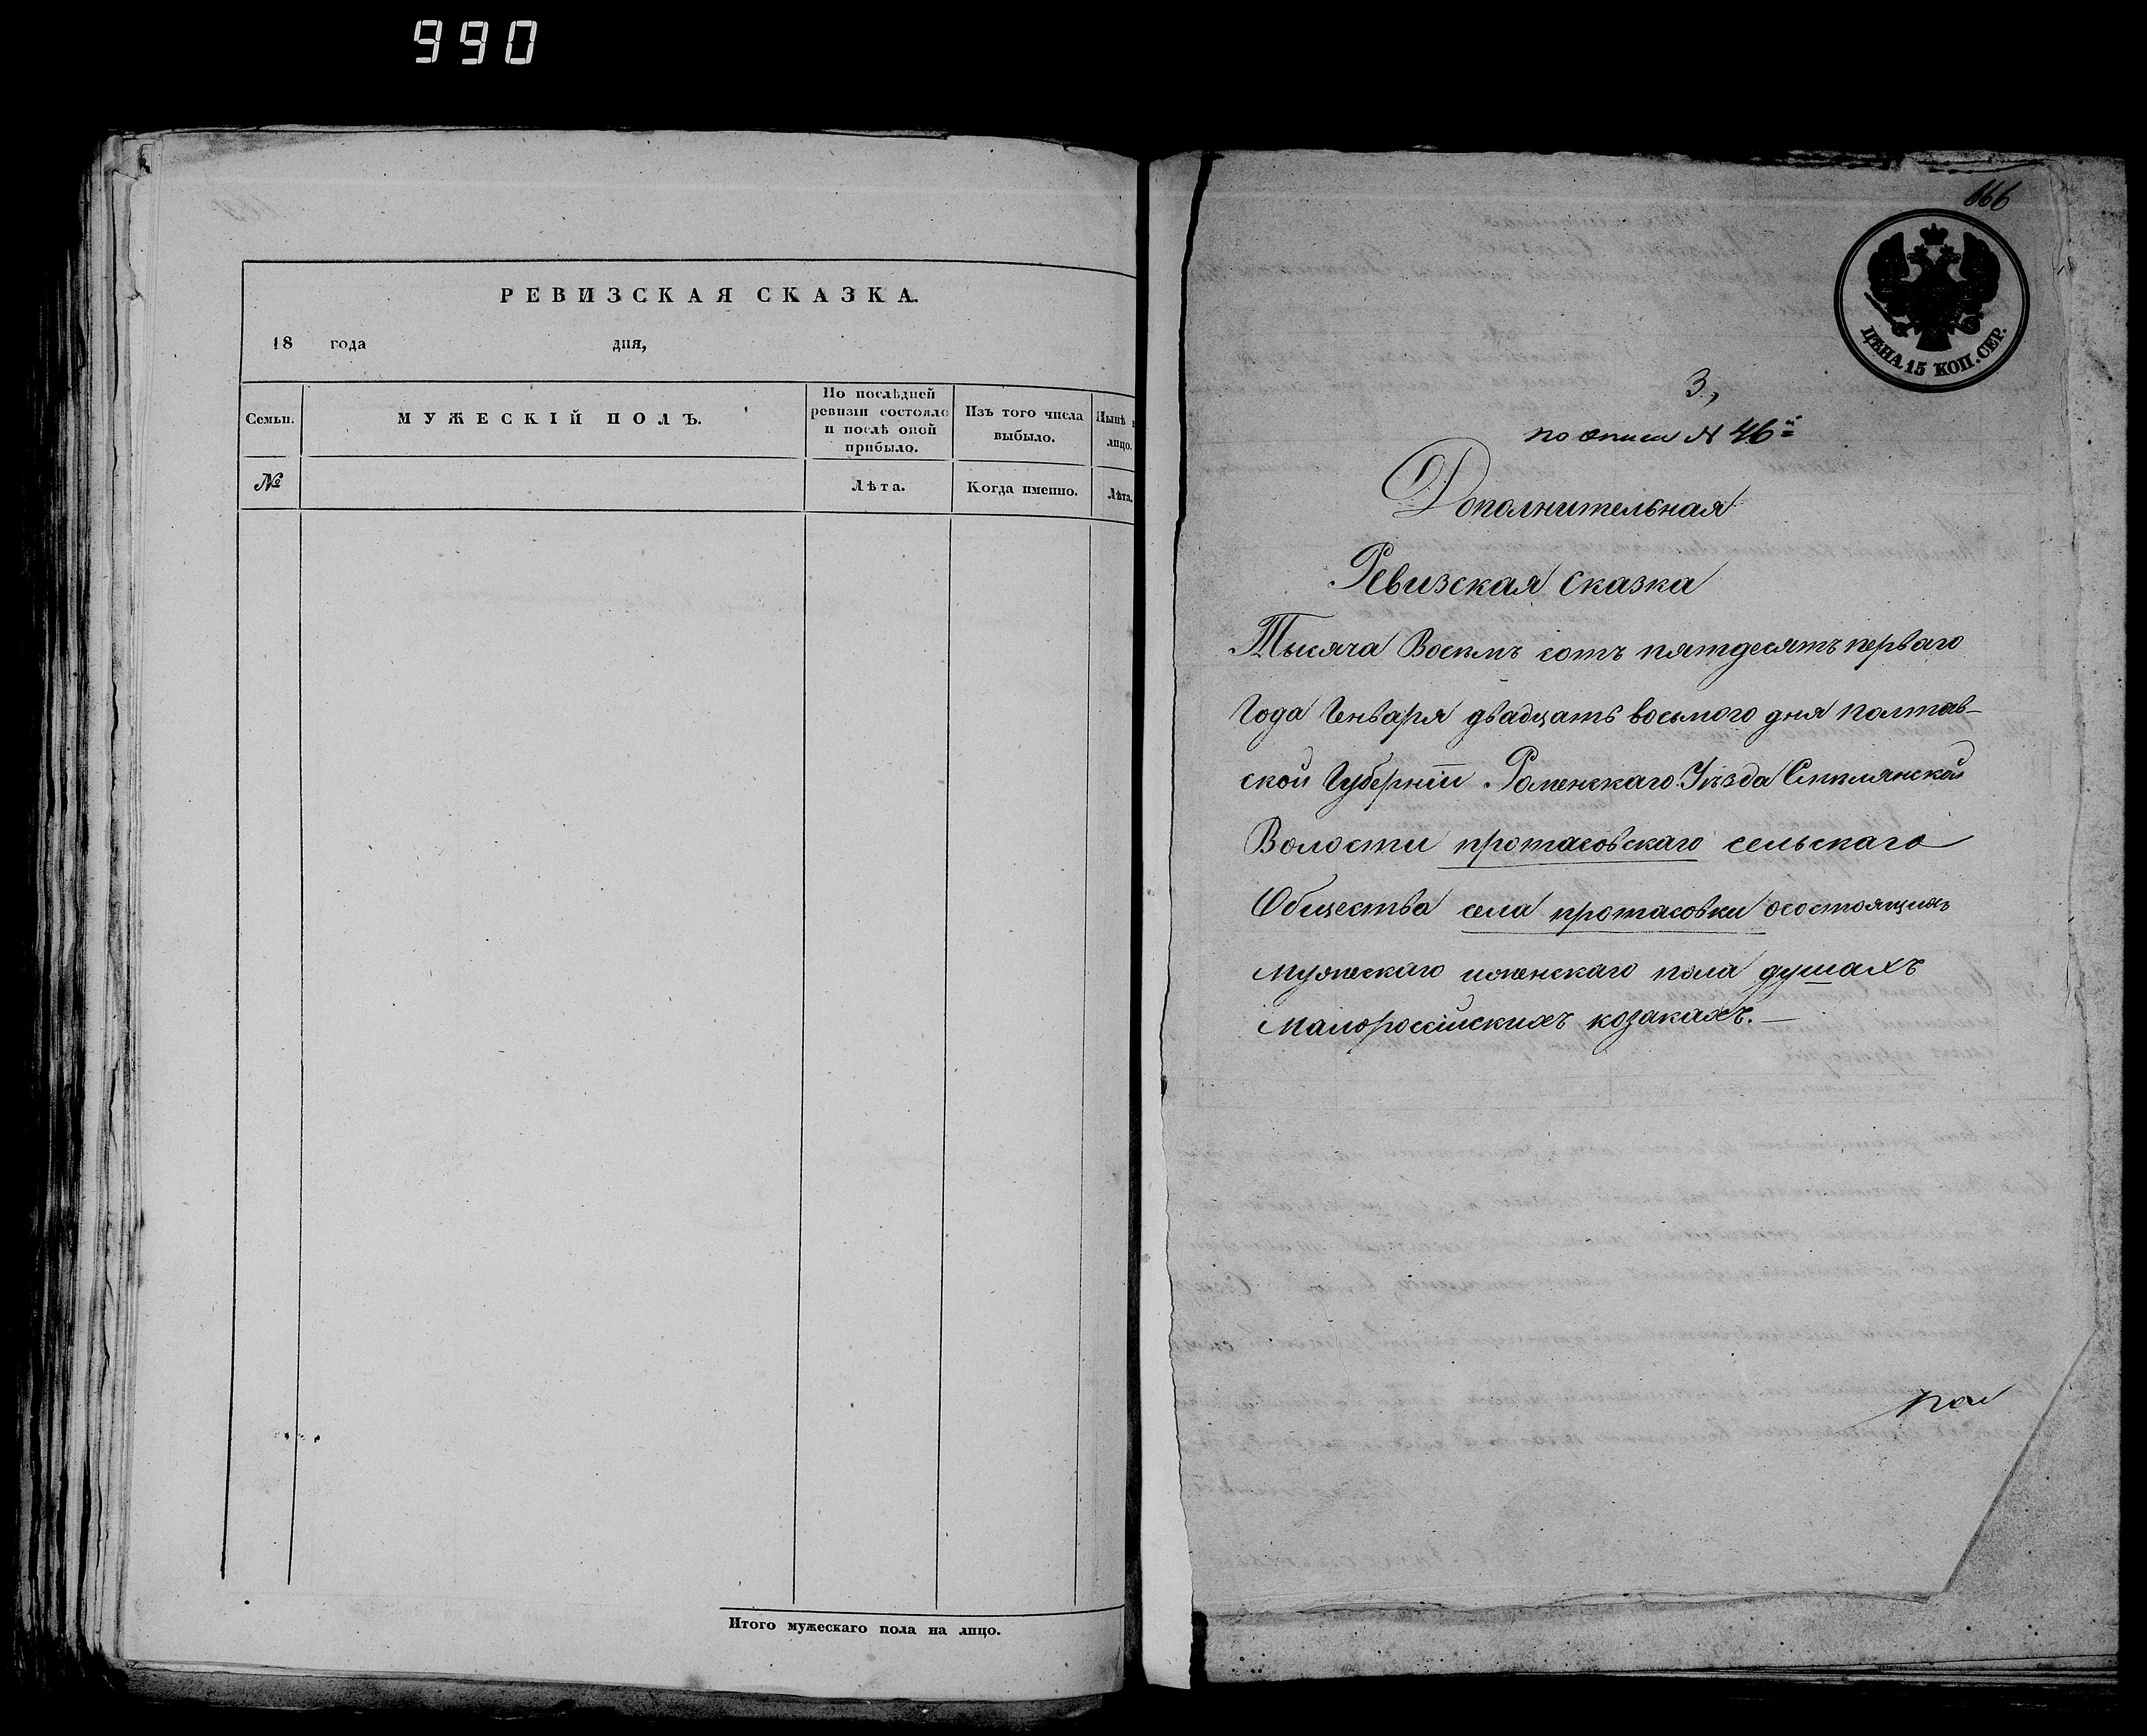 990
РЕВИЗСКАЯ СКАЗКА.
18 года дня,
Семьи.
МУЖЕСКІЙ ПОЛЪ.
По послѣдней
ревизіи состояло
и послѣ оной
прибыло.
Изъ того числа
выбыло.
Нынѣ
лицо.
№
Лѣта.
Когда именно.
Лѣта.
Итого мужескаго пола на лицо.
666
ЦѢНА 15 КОП. СЕР.
3.,
по описи № 46й
Дополнительная
Ревизская сказка
Тысяча Восемъ сотъ пятдесятъ перваго
Года Генваря двадцать восьмого дня полтав-
ской Губерніи Роменскаго Уѣзда Смѣлянской
Волости протасовскаго сельскаго
Общества села протасовки осостоящихъ
мужескаго иженскаго пола душахъ
Малороссійскихъ козакахъ.—